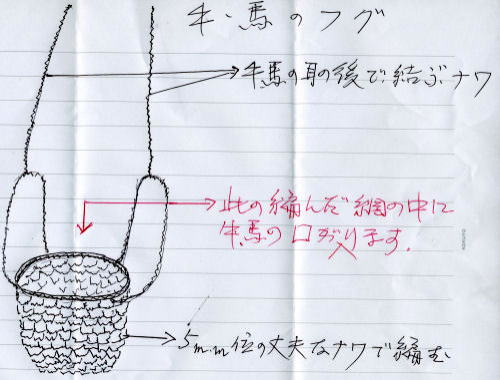 牛・馬のフグ
牛馬の耳の後で結ぶナワ
此の編んだ網の中に
牛馬の口が入ります。
5m.m位の丈夫なナワで編む